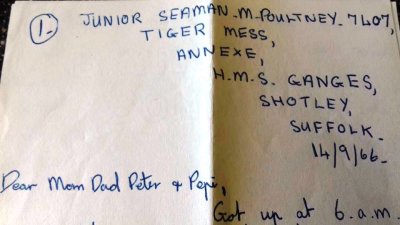 1. JUNIOR SEAMAN. M. POULTNEY. 7407,
TIGER MESS,
ANNEXE,
H.M.S. GANGES,
SHOTLEY,
SUFFOLK.
14/9/66.
Dear Mom Dad Peter & Pepi,
Got up at 6.a.m.